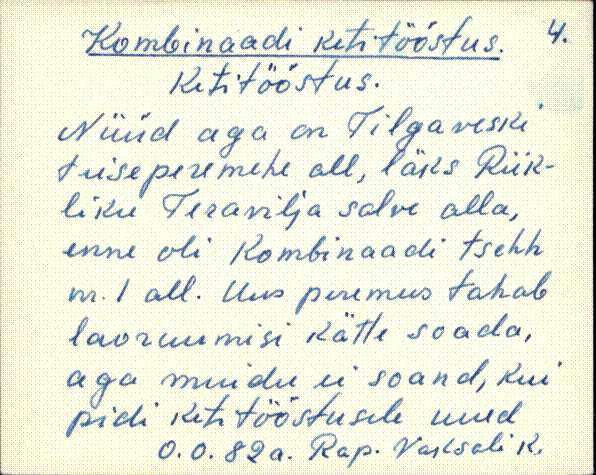 Kombinaadi ketitööstus. 4.
Ketitööstus.
Nüüd aga on Tilgaveski
teiseperemehe all, läks Riik-
liku Teravilja salve alla,
enne oli Kombinaadi tsehh
nr. 1 all. Uus peremus tahab
laoruumisi kätte soada,
aga muidu ei soand, kui
pidi ketitööstusele uued
O.O. 82a. Rap. Vaksali k.